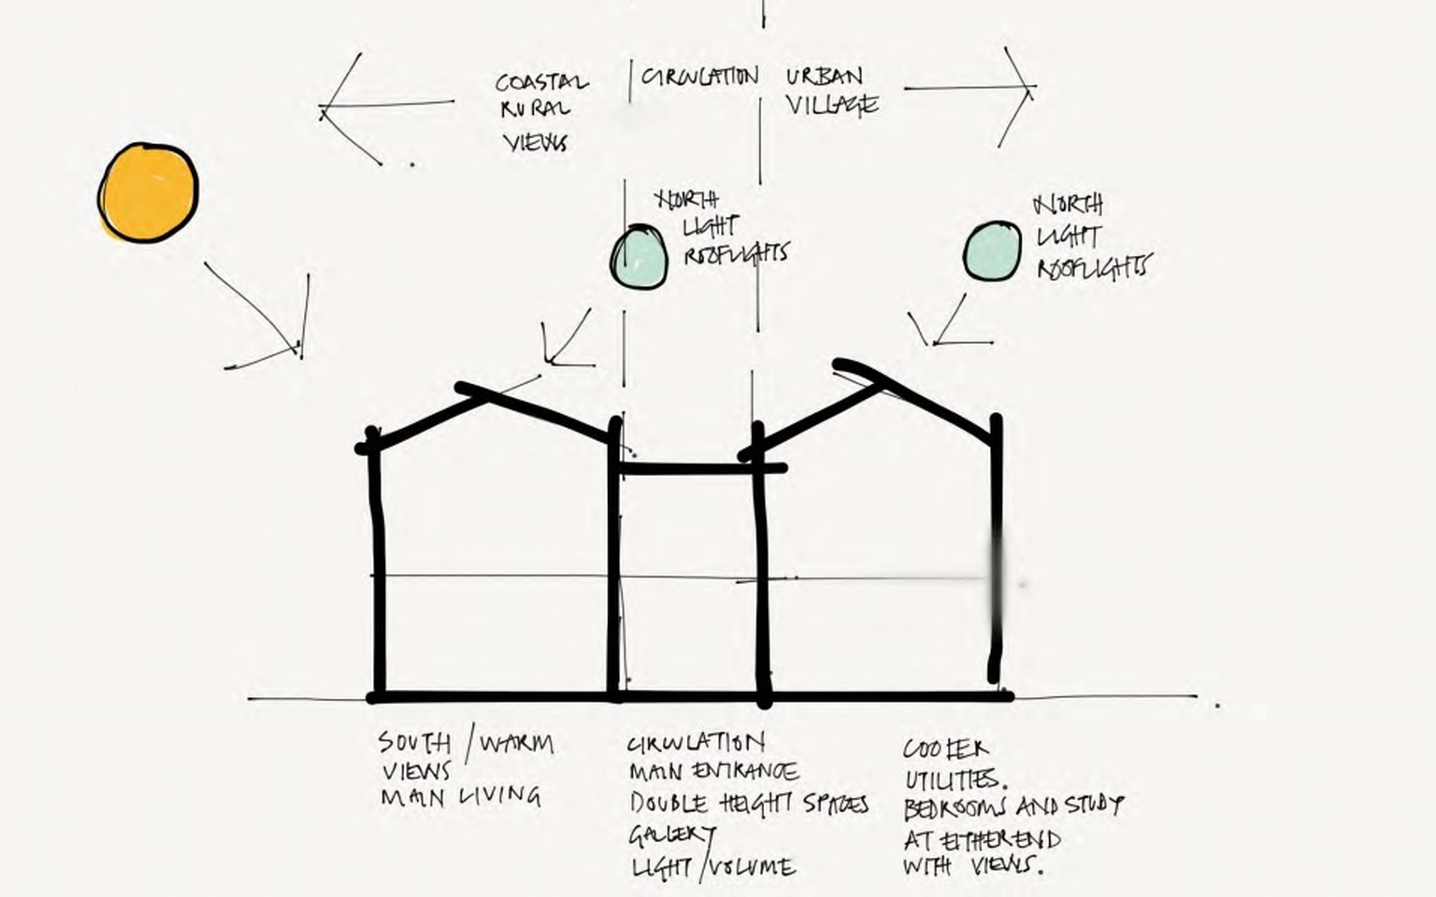 COASTAL
RURAL
VIEWS
CIRCULATION
URBAN
VILLAGE
NORTH
LIGHT
ROOFLIGHTS
NORTH
LIGHT
ROOFLIGHTS
SOUTH / WARM
VIEWS
MAIN LIVING
CIRCULATION
MAIN ENTRANCE
DOUBLE HEIGHT SPACES
GALLERY
LIGHT / VOLUME
COOLER
UTILITIES.
BEDROOMS AND STUDY
AT EITHER END
WITH VIEWS.